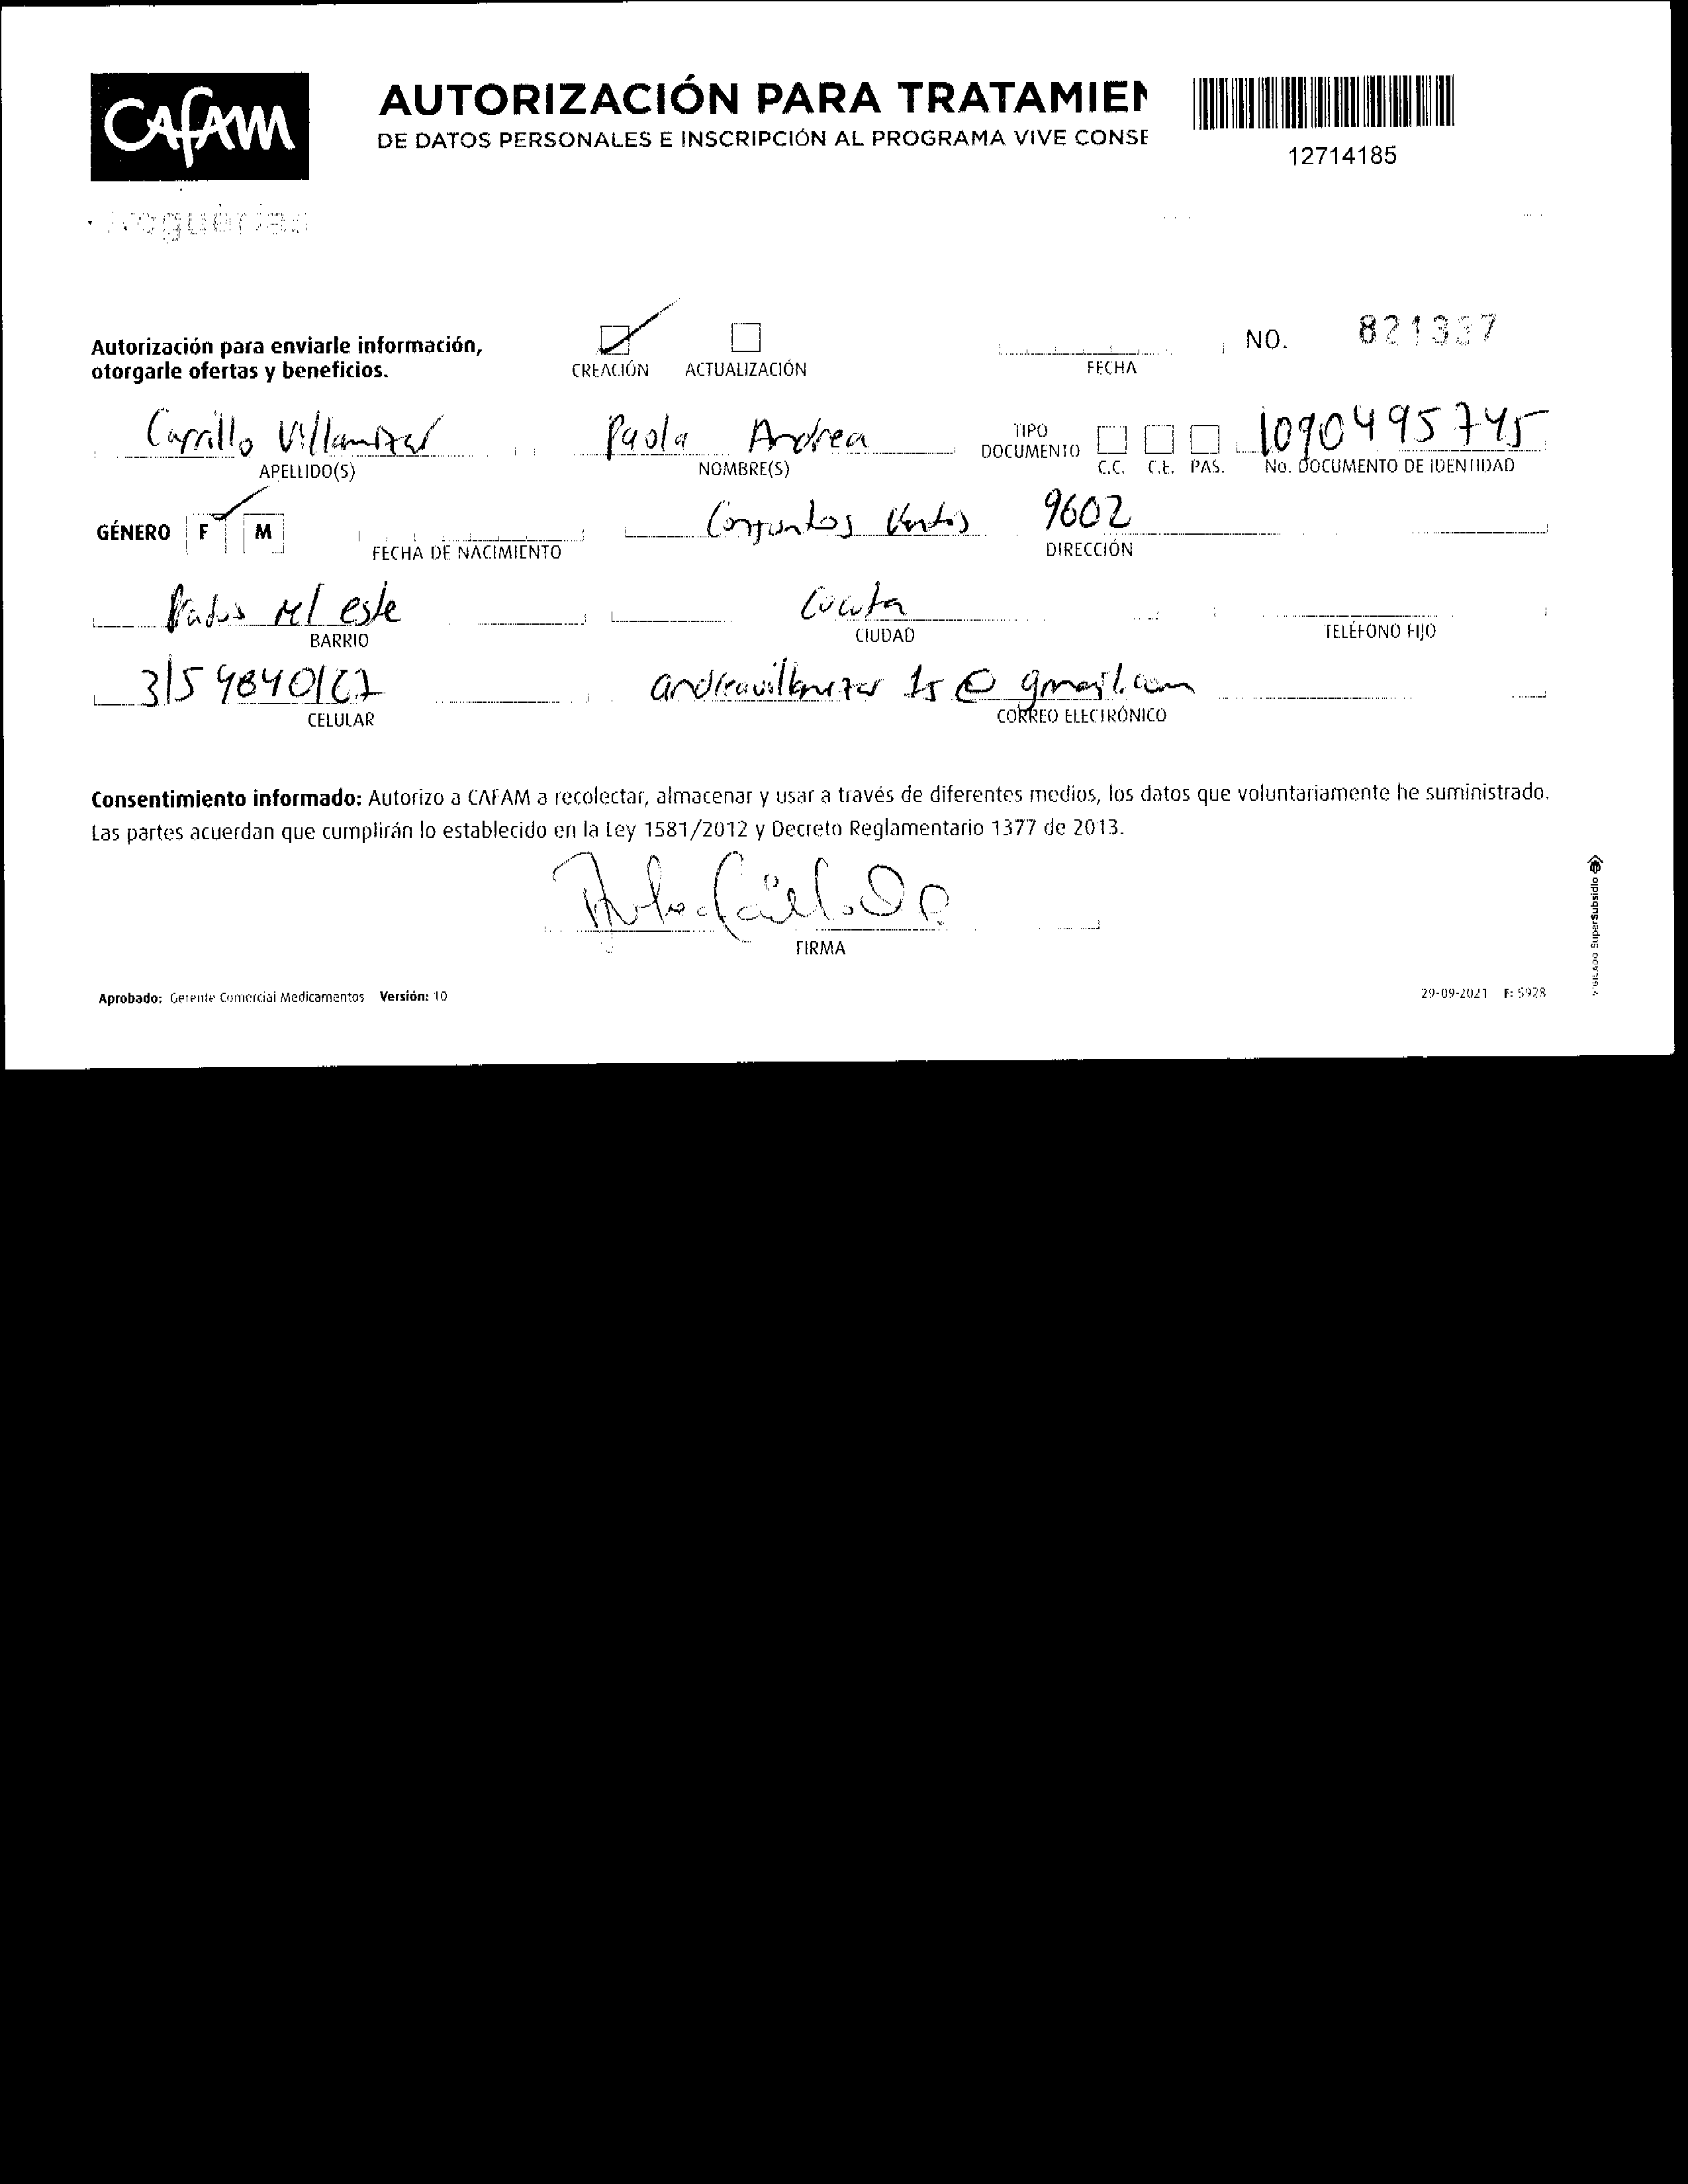 CAFAM
AUTORIZACIÓN PARA TRATAMIEN
DE DATOS PERSONALES E INSCRIPCIÓN AL PROGRAMA VIVE CONSE
12714185
Autorización para enviarle información,
otorgarle ofertas y beneficios.
CREACIÓN ACTUALIZACIÓN
FECHA
NO. 821337
Carrillo Villamizar
APELLIDO(S)
Paola Andrea
NOMBRE(S)
TIPO
DOCUMENTO
C.C. C.E. PAS.
1090495745
No. DOCUMENTO DE IDENTIDAD
GÉNERO F M
FECHA DE NACIMIENTO
9602
DIRECCIÓN
del este
BARRIO
Cucuta
CIUDAD
TELÉFONO FIJO
CELULAR
andreavillamizar 15 @ gmail.com
CORREO ELECTRÓNICO
Consentimiento informado: Autorizo a CAFAM a recolectar, almacenar y usar a través de diferentes medios, los datos que voluntariamente he suministrado.
Las partes acuerdan que cumplirán lo establecido en la Ley 1581/2012 y Decreto Reglamentario 1377 de 2013.
FIRMA
Aprobado: Gerente Comercial Medicamentos Versión: 10
29-09-2021 F: 5928
VIGILADO SuperSubsidio